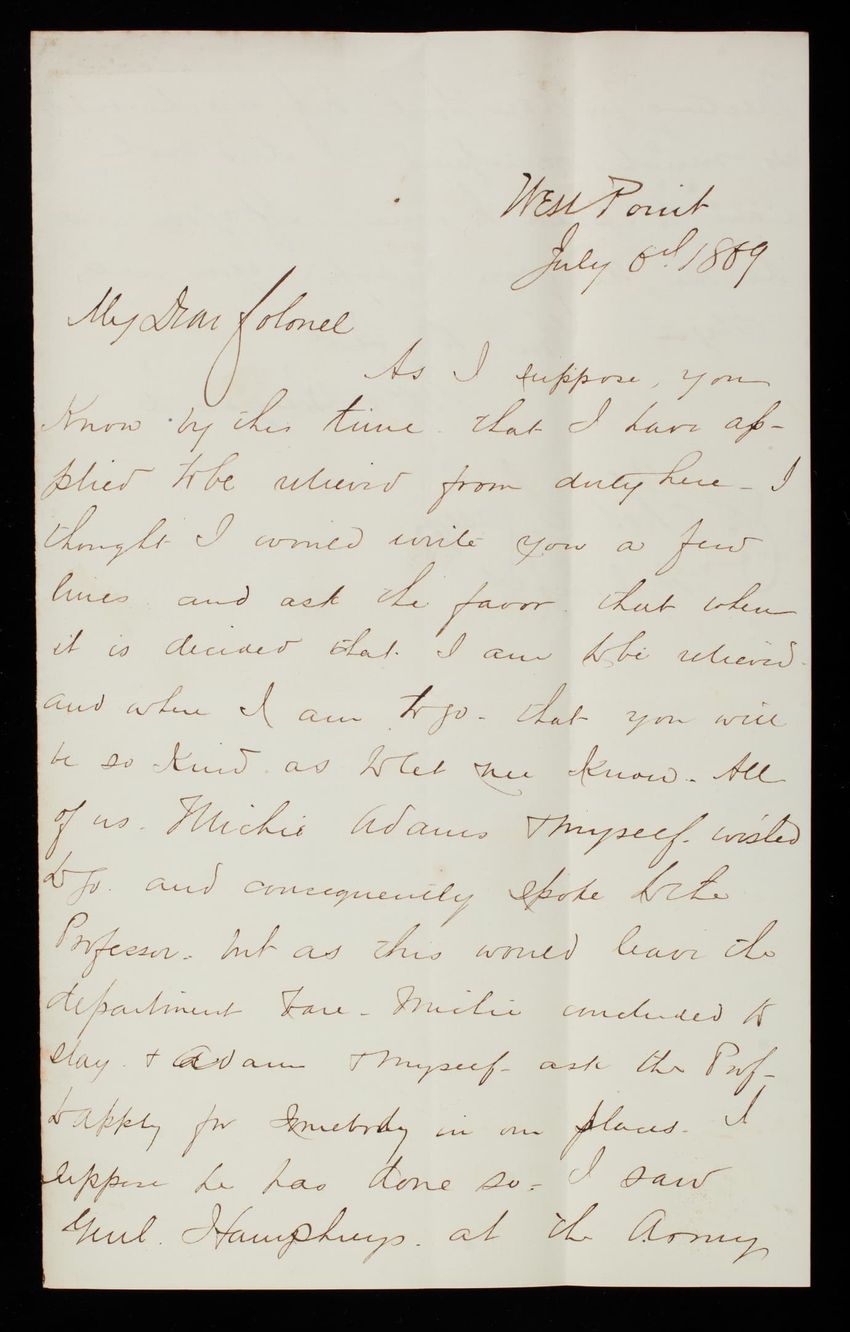 West Point
July 6d 1869
My Dear Colonel
As I suppose, you
Know by this time that I have ap-
plied to be relieved from duty here - I
thought I would write you a few
lines and ask the favor that when
it is decided that I am to be relieved
and where I am to go - that you will
be so Kind as to let me Know. All
of us. Michie Adams & myself - wished
to go. and consequently spoke to the
Professor - but as this would leave the
department - Michie concluded to
stay & Adams & myself - ask the Prof-
to apply for somebody in our places. I
suppose he has done so - I saw
Genl. Humphreys. at the Army